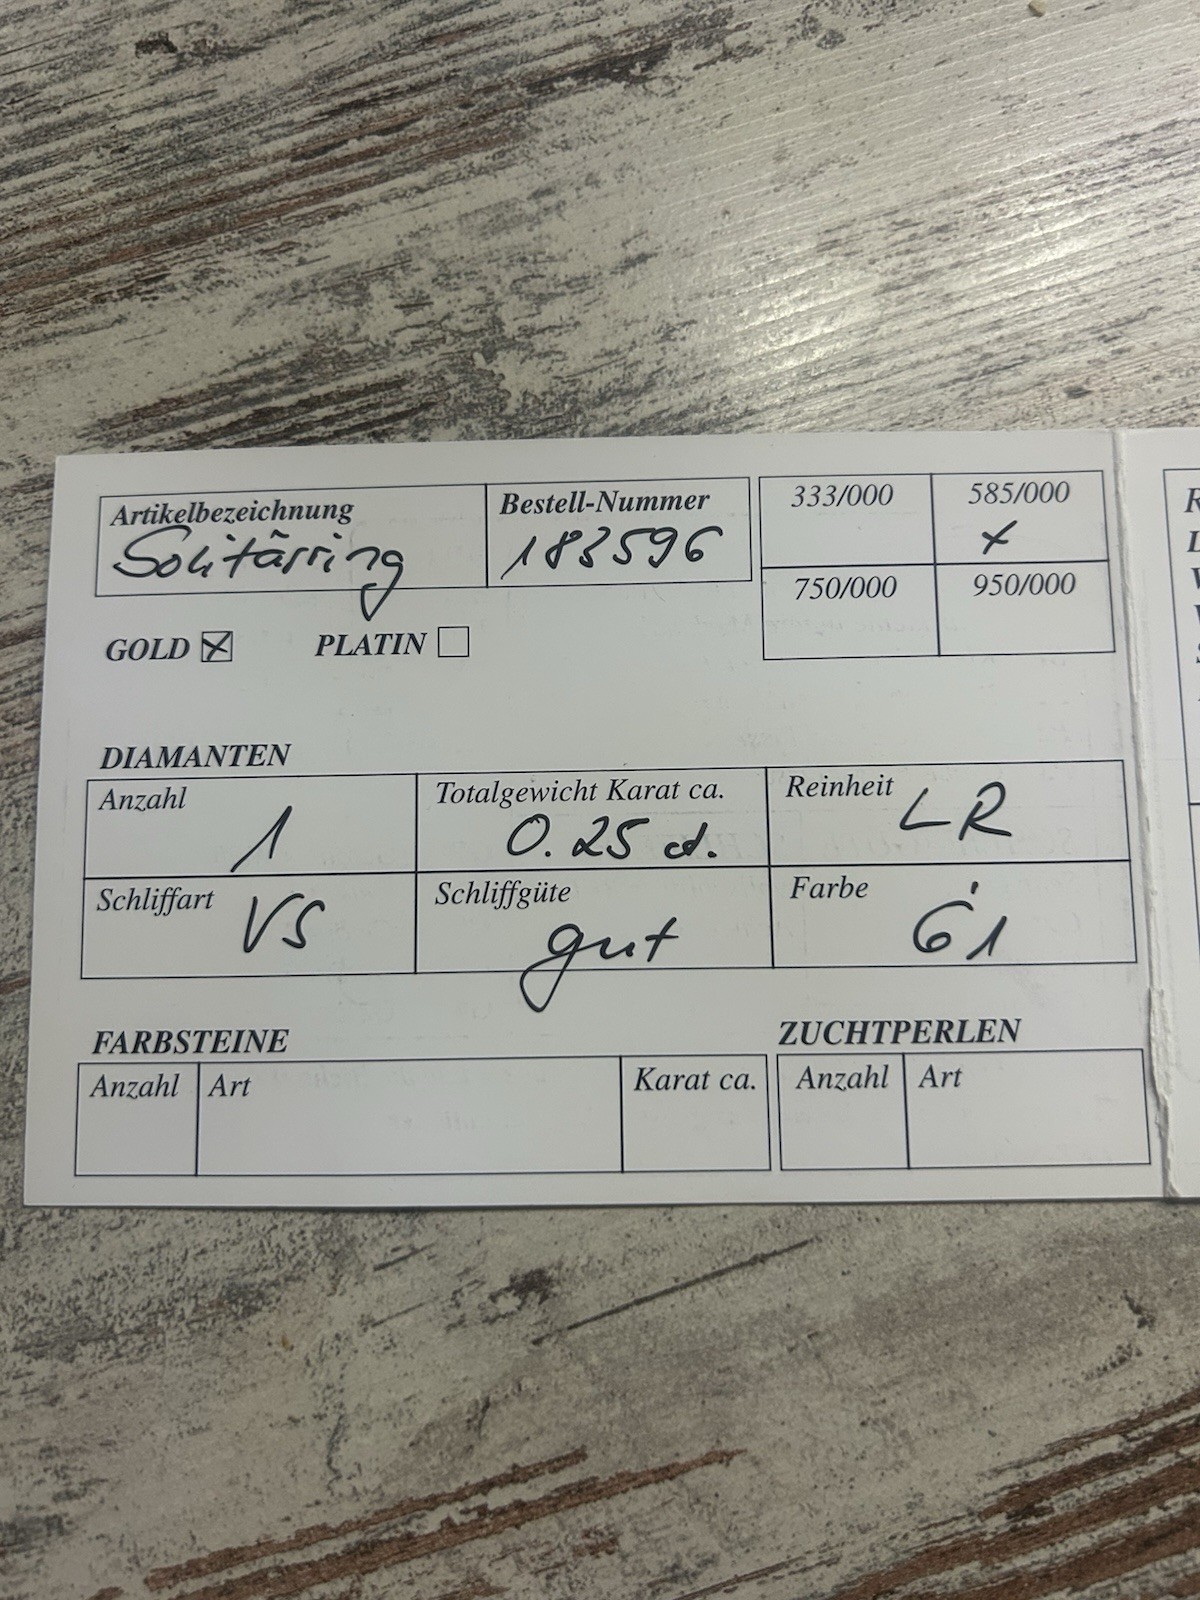 Artikelbezeichnung
Solitärring
Bestell-Nummer
183596
333/000
585/000
x
750/000
950/000
GOLD x PLATIN
DIAMANTEN
Anzahl
1
Totalgewicht Karat ca.
0.25 ct.
Reinheit
LR
Schliffart
VS
Schliffgüte
gut
Farbe
FARBSTEINE
Anzahl
Art
Karat ca.
ZUCHTPERLEN
Anzahl
Art